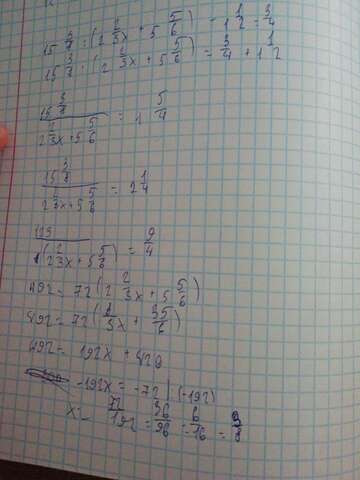 15 3/8 : (2 2/3x + 5 5/6) - 1 1/2 = 3/4
15 3/8 : (2 2/3x + 5 5/6) = 3/4 + 1 1/2
15 3/8 / 2 2/3x + 5 5/6 = 1 5/4
15 3/8 / 2 2/3x + 5 5/6 = 2 1/4
= 9/4
492 = 72(2 2/3x + 5 5/6)
492 = 72(8/3x + 35/6)
492 = 192x + 420
-192x = -72 | (-192)
x = 72/192 = 36/96 = 6/16 = 3/8